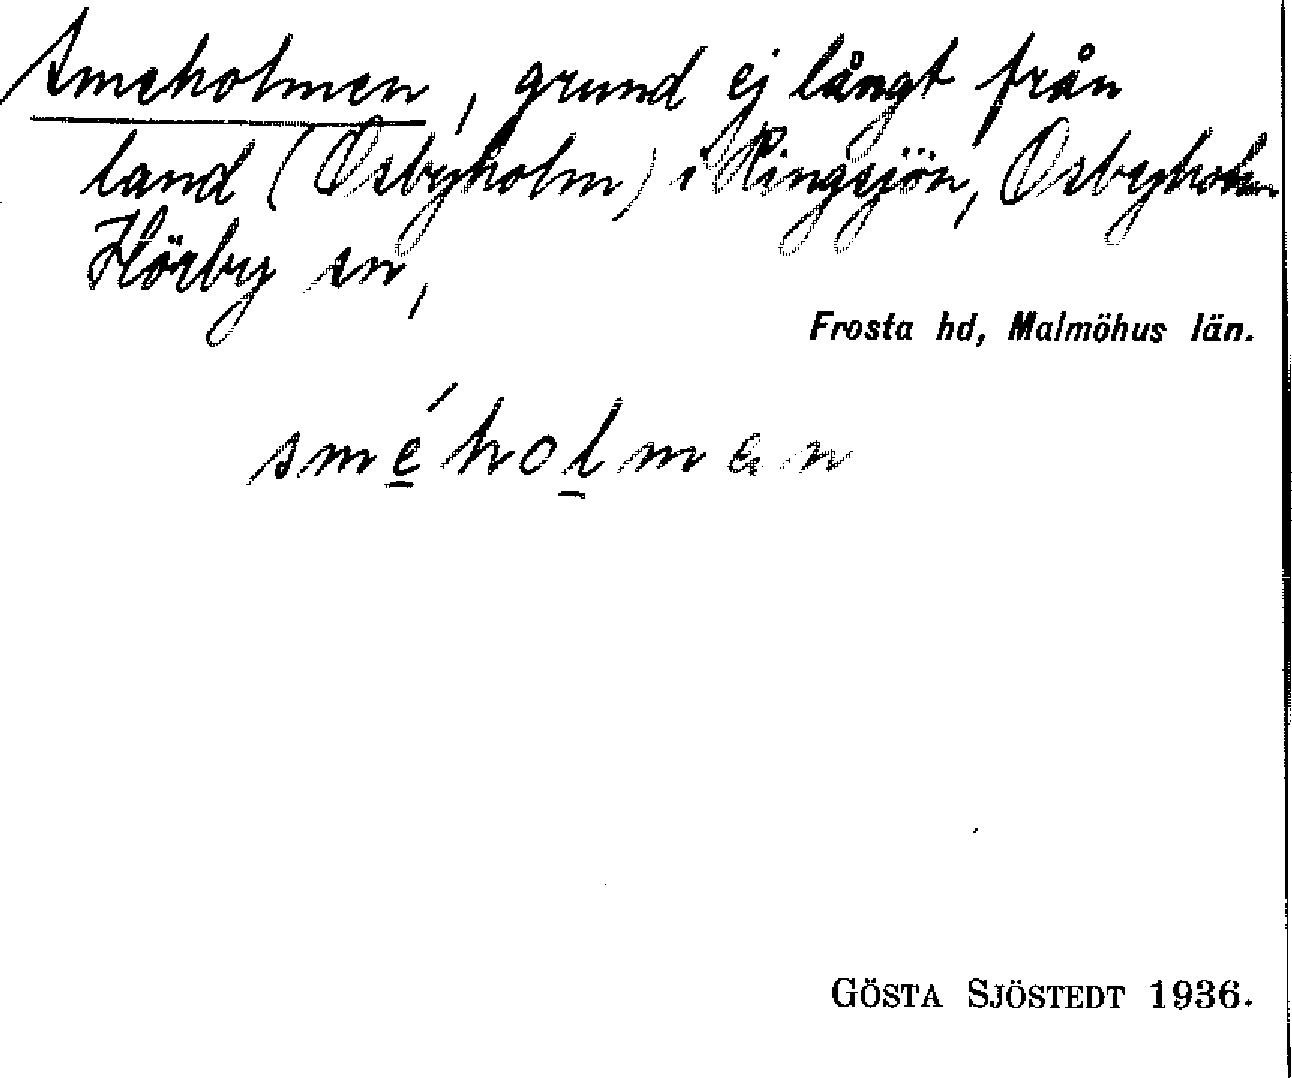 Smeholmen, grund ej långt från
land (Osbyholm) i Ringsjön, Osbyholm
Hörby sn,
Frosta hd, Malmöhus län.
sméholman
GÖSTA SJÖSTEDT 1936.